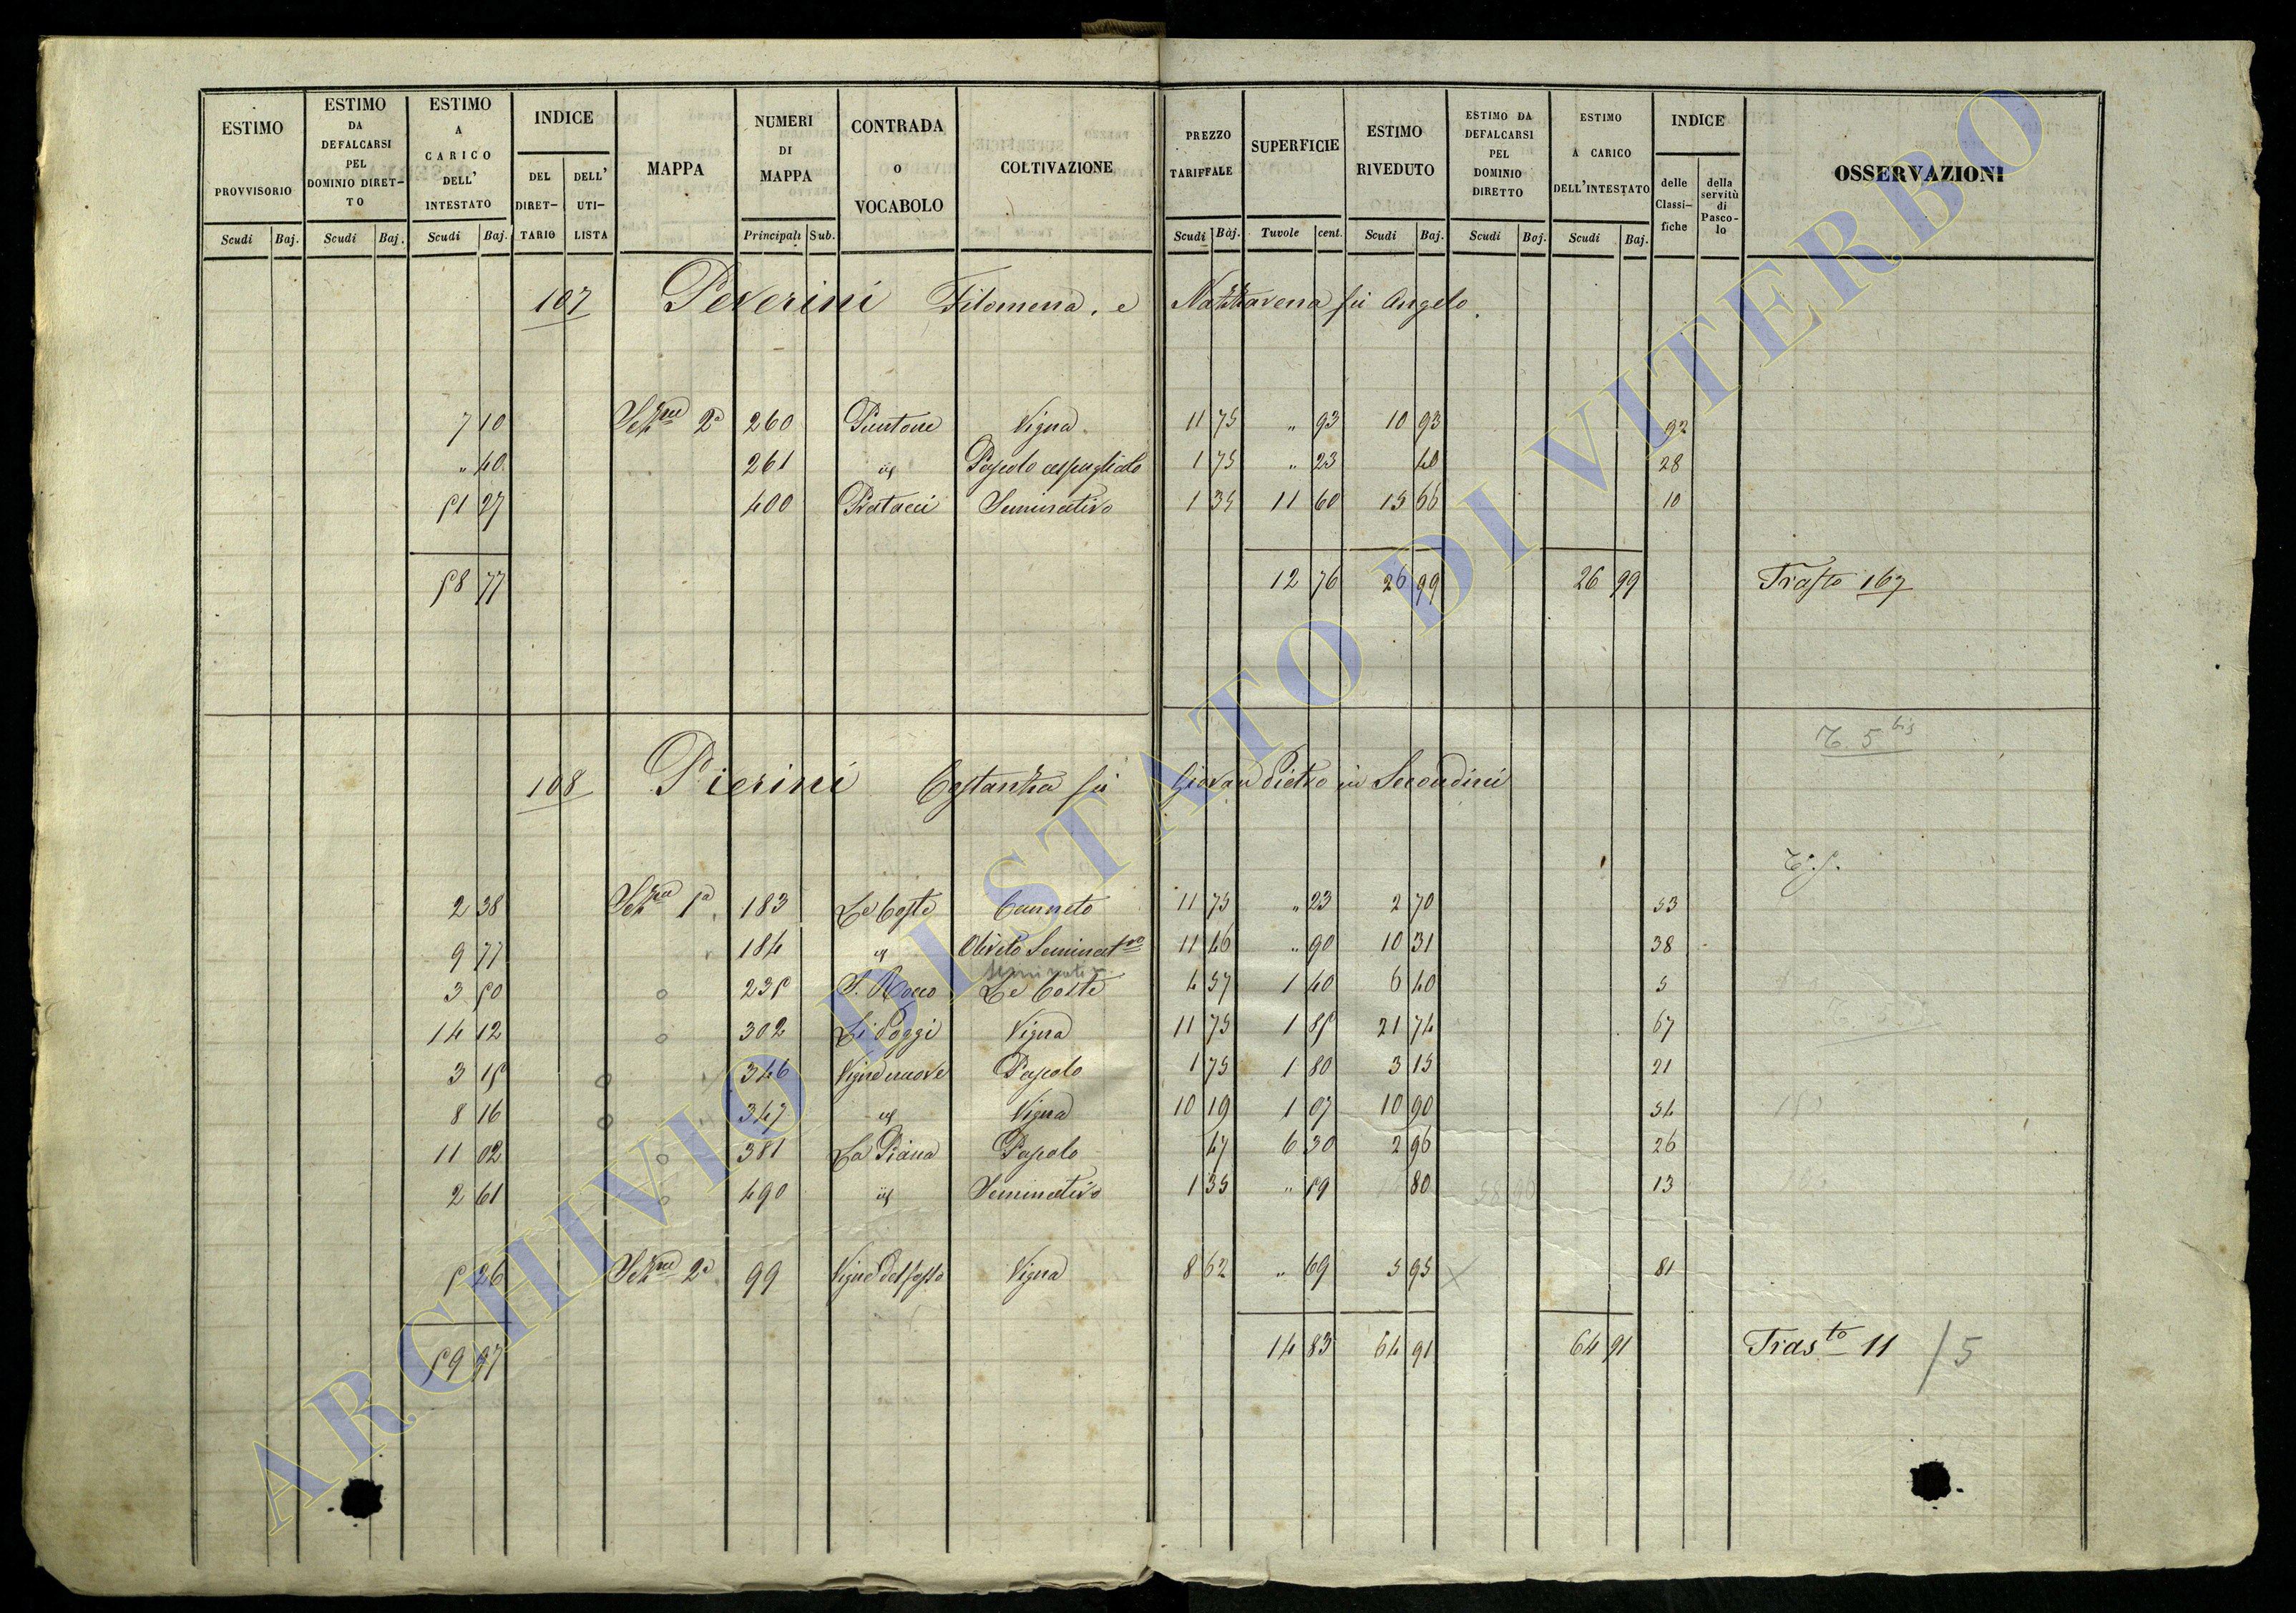 ESTIMO PROVVISORIO
ESTIMO DA DEFALCARSI PEL DOMINIO DIRETTO
ESTIMO A CARICO DELL' INTESTATO
INDICE
DEL DIRETTARIO
DELL' UTILISTA
MAPPA
NUMERI DI MAPPA
CONTRADA o VOCABOLO
COLTIVAZIONE
PREZZO TARIFFALE
SUPERFICIE
ESTIMO RIVEDUTO
ESTIMO DA DEFALCARSI PEL DOMINIO DIRETTO
ESTIMO A CARICO DELL'INTESTATO
INDICE
delle Classifiche
della servitù di Pascolo
OSSERVAZIONI
Scudi Baj. Scudi Baj. Scudi Baj. Principali Sub. Scudi Baj. Tavole cent. Scudi Baj. Scudi Baj. Scudi Baj.
107 Peverini Filomena, e Nazzarena fu Angelo.
7 10 Sezne 2a 260 Puntone Vigna 11 75 " 93 10 93 92
" 40 261 id Pascolo cespugliato 1 75 " 23 40 28
51 27 400 Pratacci Seminativo 1 35 11 60 15 66 10
58 77 12 76 26 99 26 99 Trasto 167
T. 5 bis
108 Pierini Costanza fu Giovan Pietro in Secondini
T. 5.
2 38 Sezne 1a 183 Le Coste Canneto 11 75 " 23 2 70 53
9 77 184 id Oliveto Seminatvo 11 46 " 90 10 31 38
seminativo
3 50 235 S. Rocco Le Coste 4 57 1 40 6 40 5
14 12 302 Li Poggi Vigna 11 75 1 85 21 74 67
3 15 346 Vigne nuove Pascolo 1 75 1 80 3 15 21
8 16 347 id Vigna 10 19 1 07 10 90 54
11 02 381 La Piana Pascolo 47 6 30 2 96 26
2 61 490 id Seminativo 1 35 " 59 80 13
5 26 Sezne 2a 99 Vigne del fosso Vigna 8 62 " 69 5 95 81
59 97 14 83 64 91 64 91 Trasto 11 / 5
ARCHIVIO DI STATO DI VITERBO